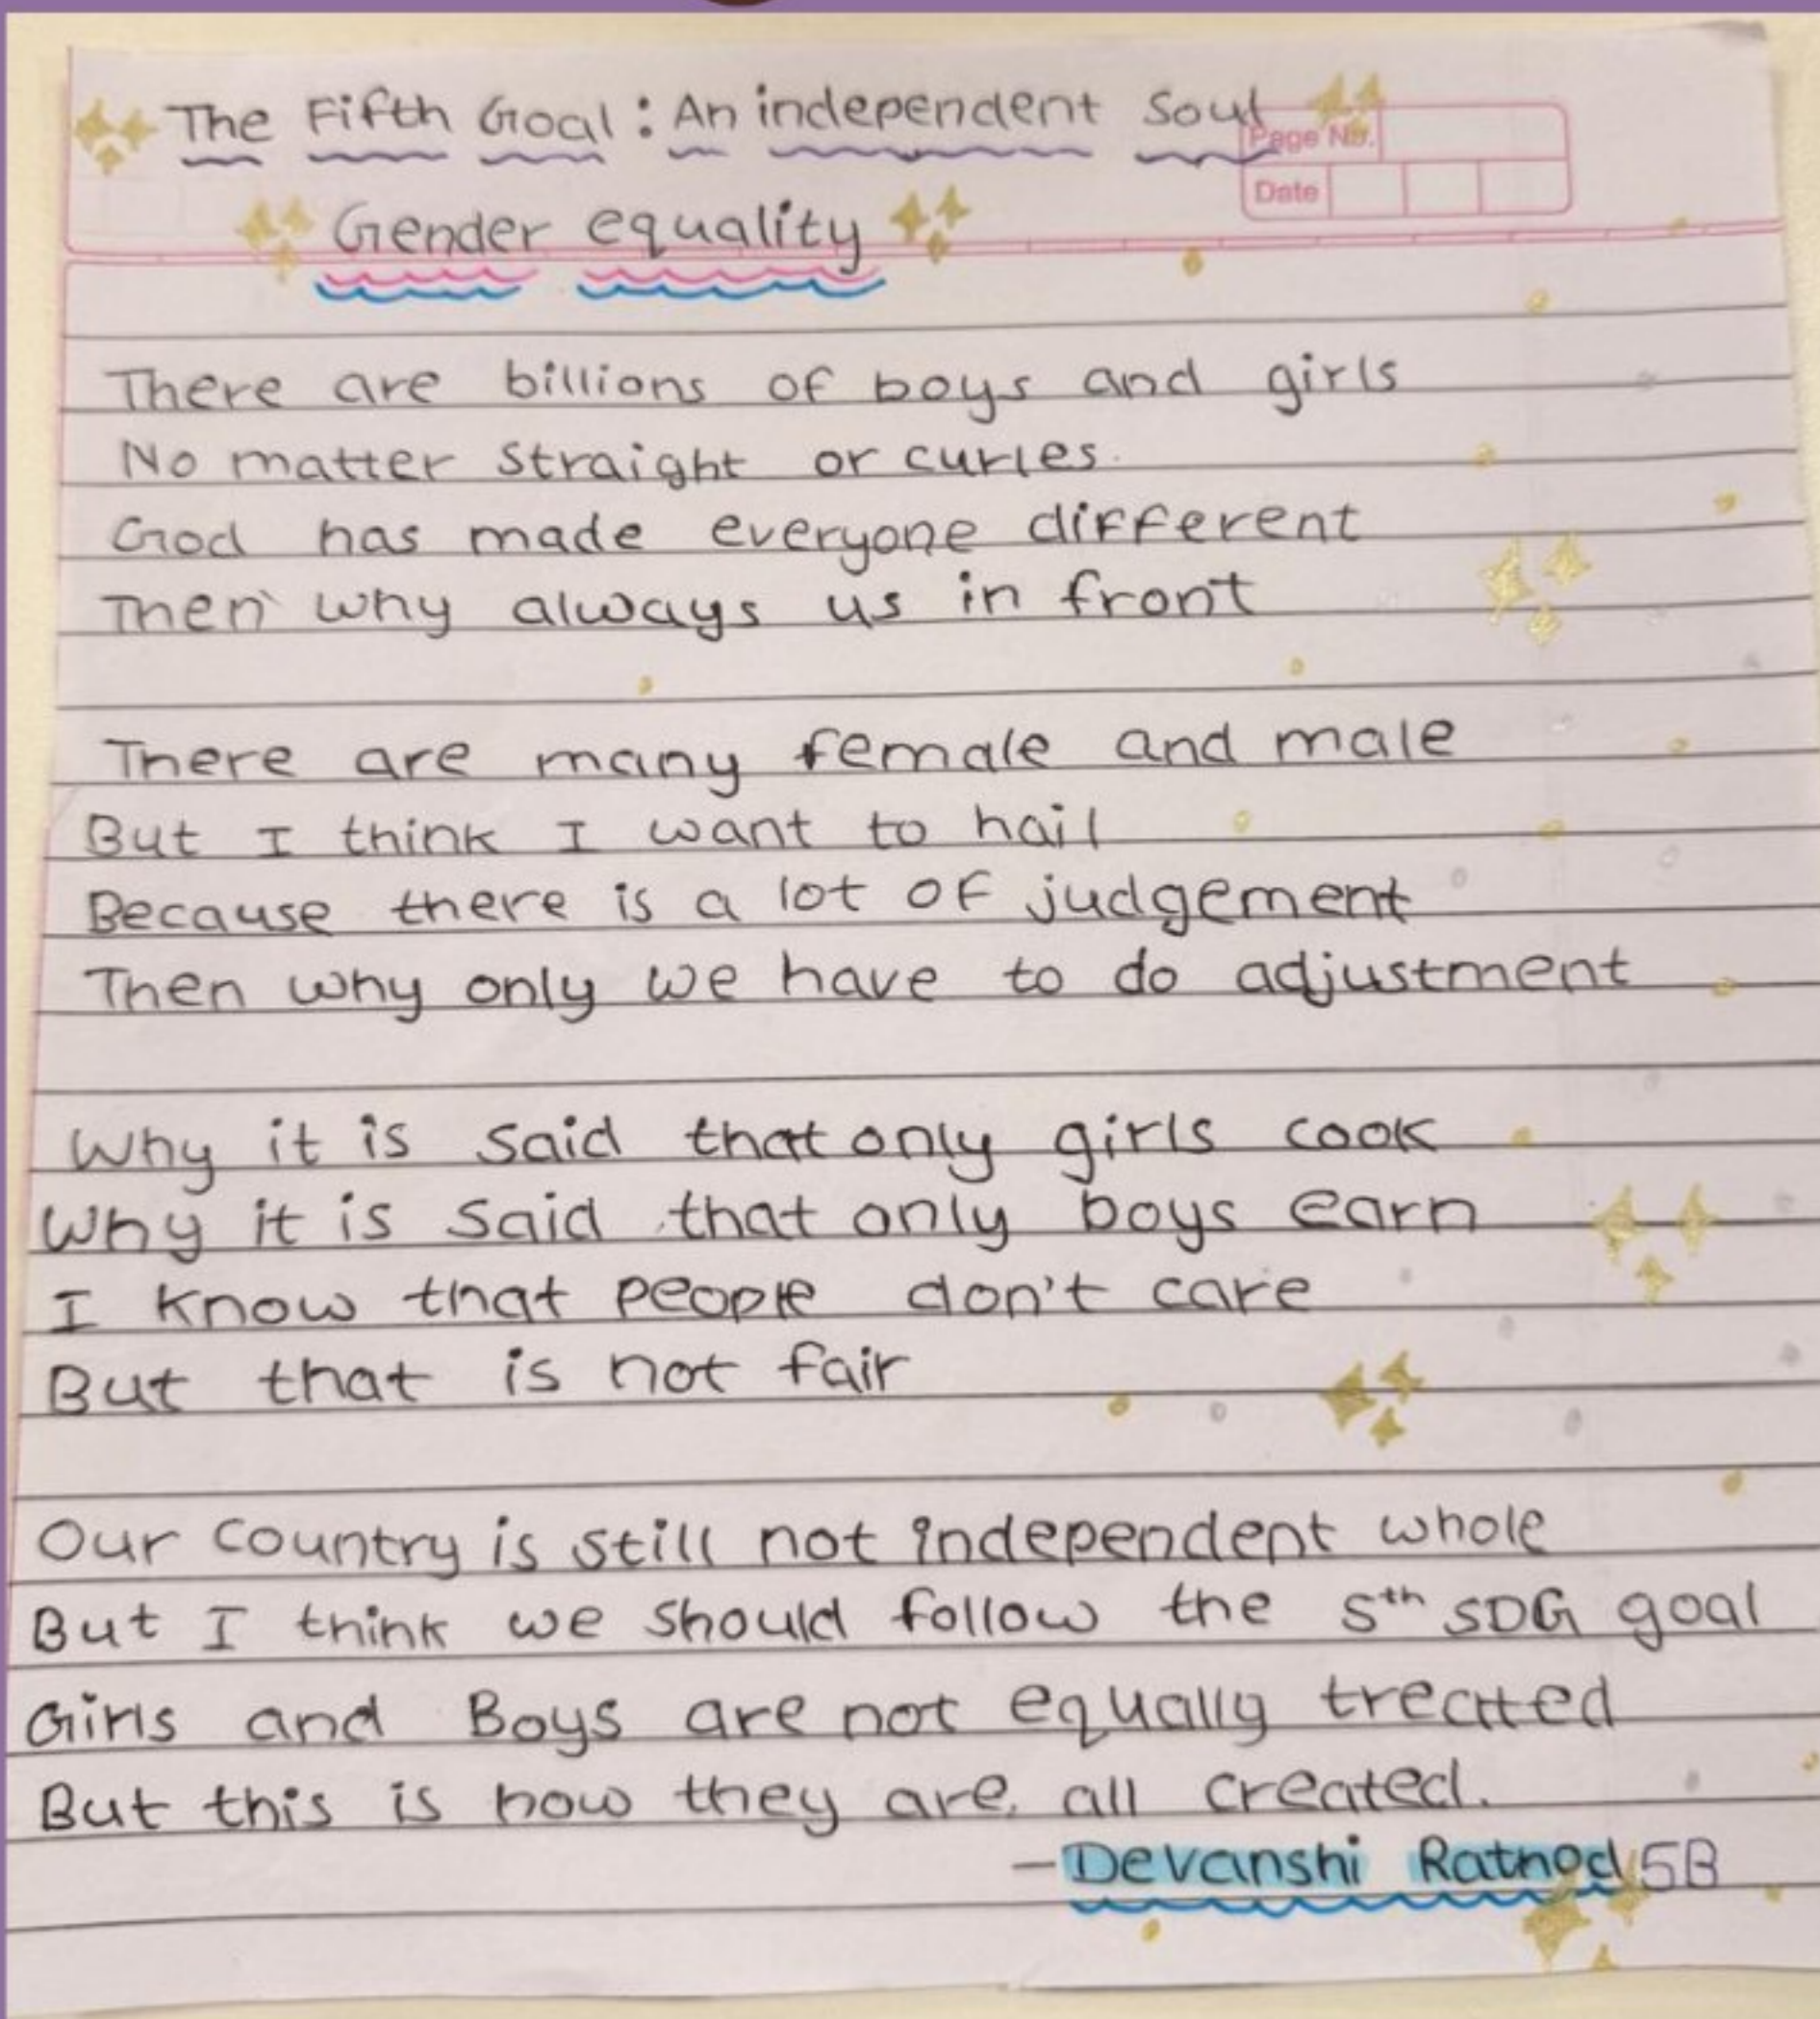 The Fifth Goal: An independent Soul
Page No.
Date
Gender equality
There are billions of boys and girls
No matter straight or curles.
God has made everyone different
Then why always us in front
There are many female and male
But I think I want to hail
Because there is a lot of judgement
Then why only we have to do adjustment
Why it is said that only girls cook
Why it is said that only boys earn
I know that people don't care
But that is not fair
Our country is still not independent whole
But I think we should follow the 5th SDG goal
Girls and Boys are not equally treated
But this is how they are all created.
- Devanshi Rathod 5B